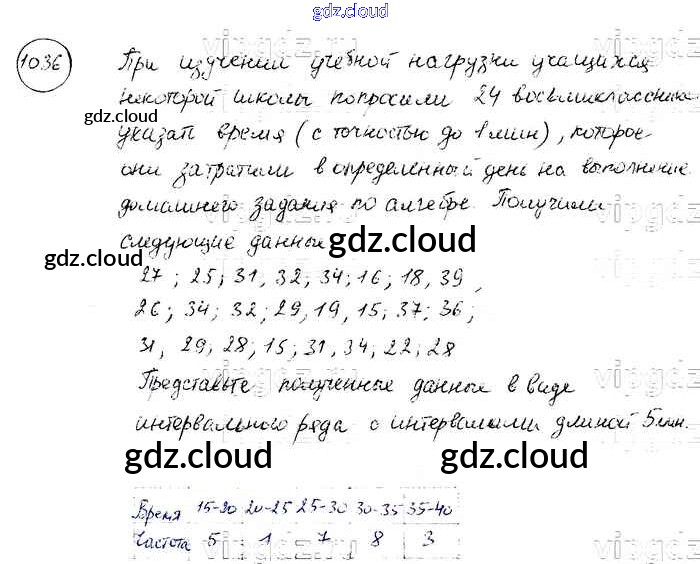 gdz.cloud
1036
При изучении учебной нагрузки учащихся
некоторой школы попросили 24 восьмиклассника
gdz.cloud
указать время (с точностью до 1 мин), которое
они затратили в определенный день на выполнение
домашнего задания по алгебре. Получили
следующие данные
gdz.cloud
gdz.cloud
27; 25; 31, 32; 34; 16; 18, 39,
26; 34; 32; 29, 19, 15; 37; 36;
31, 29; 28; 15; 31, 34; 22; 28
Представьте полученные данные в виде
интервального ряда с интервалами длиной 5 мин.
gdz.cloud gdz.cloud
Время 15-20 20-25 25-30 30-35 35-40
Частота 5 1 7 8 3